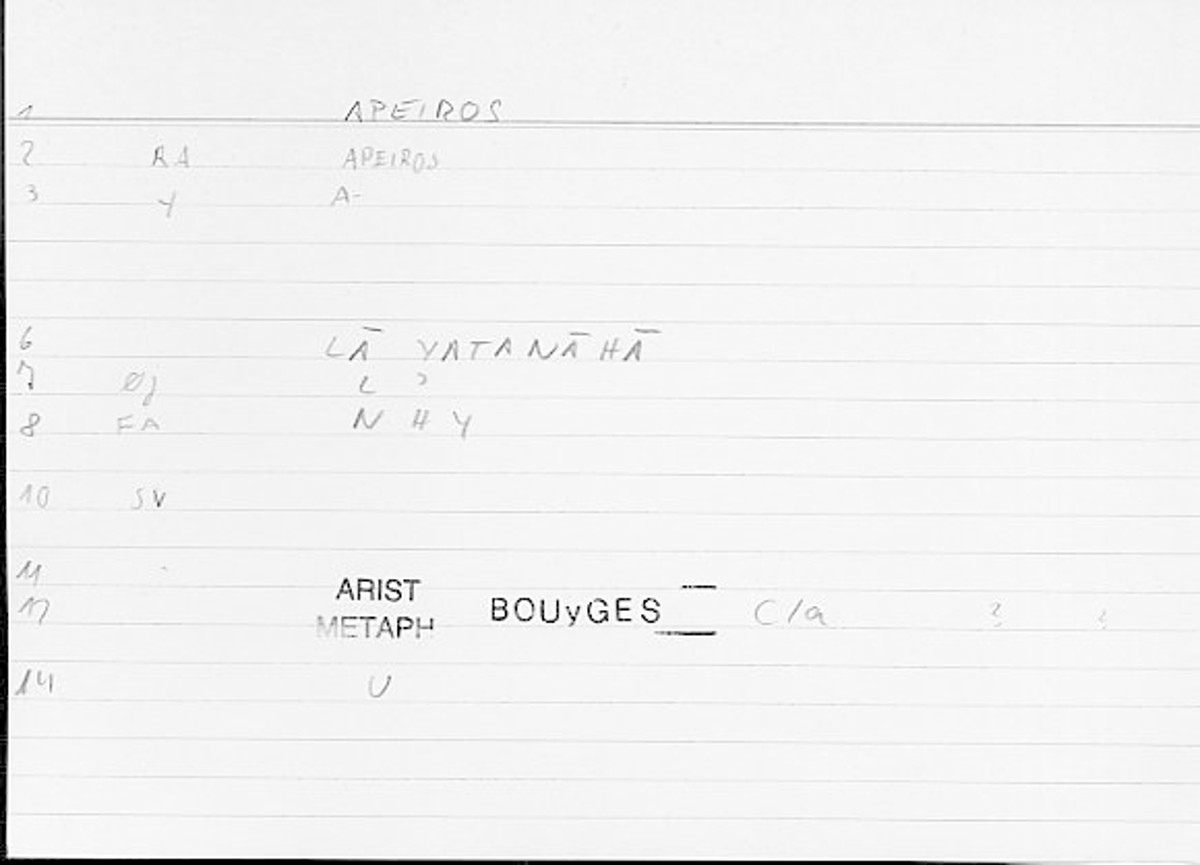 1 APEIROS
2 RA APEIROS
3 Y A-
6 LĀ YATANĀHĀ
7 Øj L ʾ
8 FA N H Y
10 SV
11 ARIST
12 METAPH BOUyGES C/a
14 U